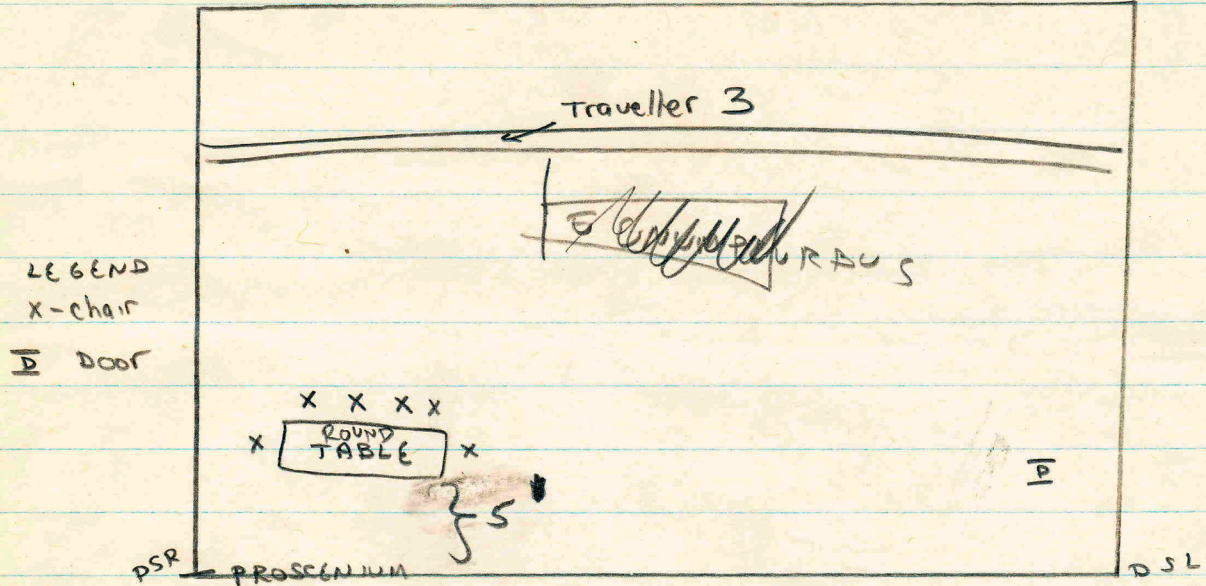 Traveller 3
LEGEND
X-Chair
D Door
X X X X
X ROUND X
TABLE
} 5'
D
DSR PROSCENIUM DSL